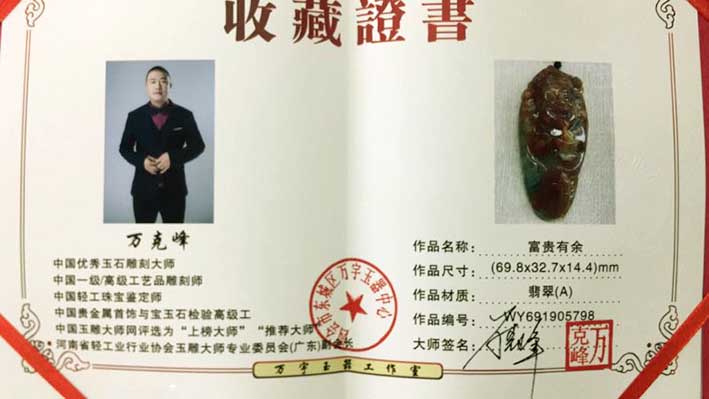 收藏證書
万克峰
中国优秀玉石雕刻大师
中国一级/高级工艺品雕刻师
中国轻工珠宝鉴定师
中国贵金属首饰与宝玉石检验高级工
中国玉雕大师网评选为“上榜大师”“推荐大师”
河南省轻工业行业协会玉雕大师专业委员会(广东)副会长
东城区万字玉器中心
作品名称: 富贵有余
作品尺寸: (69.8x32.7x14.4)mm
作品材质: 翡翠(A)
作品编号: WY691905798
大师签名:
万克峰
万字玉器工作室